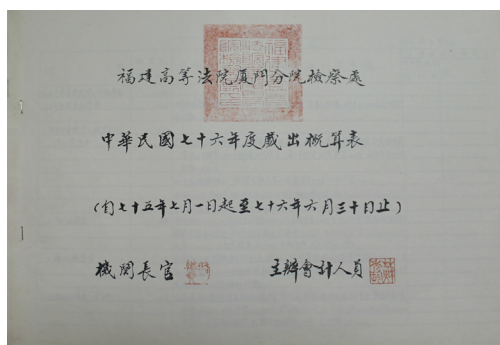 福建高等法院厦門分院檢察處
中華民國七十六年度歲出概算表
(自七十五年七月一日起至七十六年六月三十日止)
機関長官 主辦會計人員